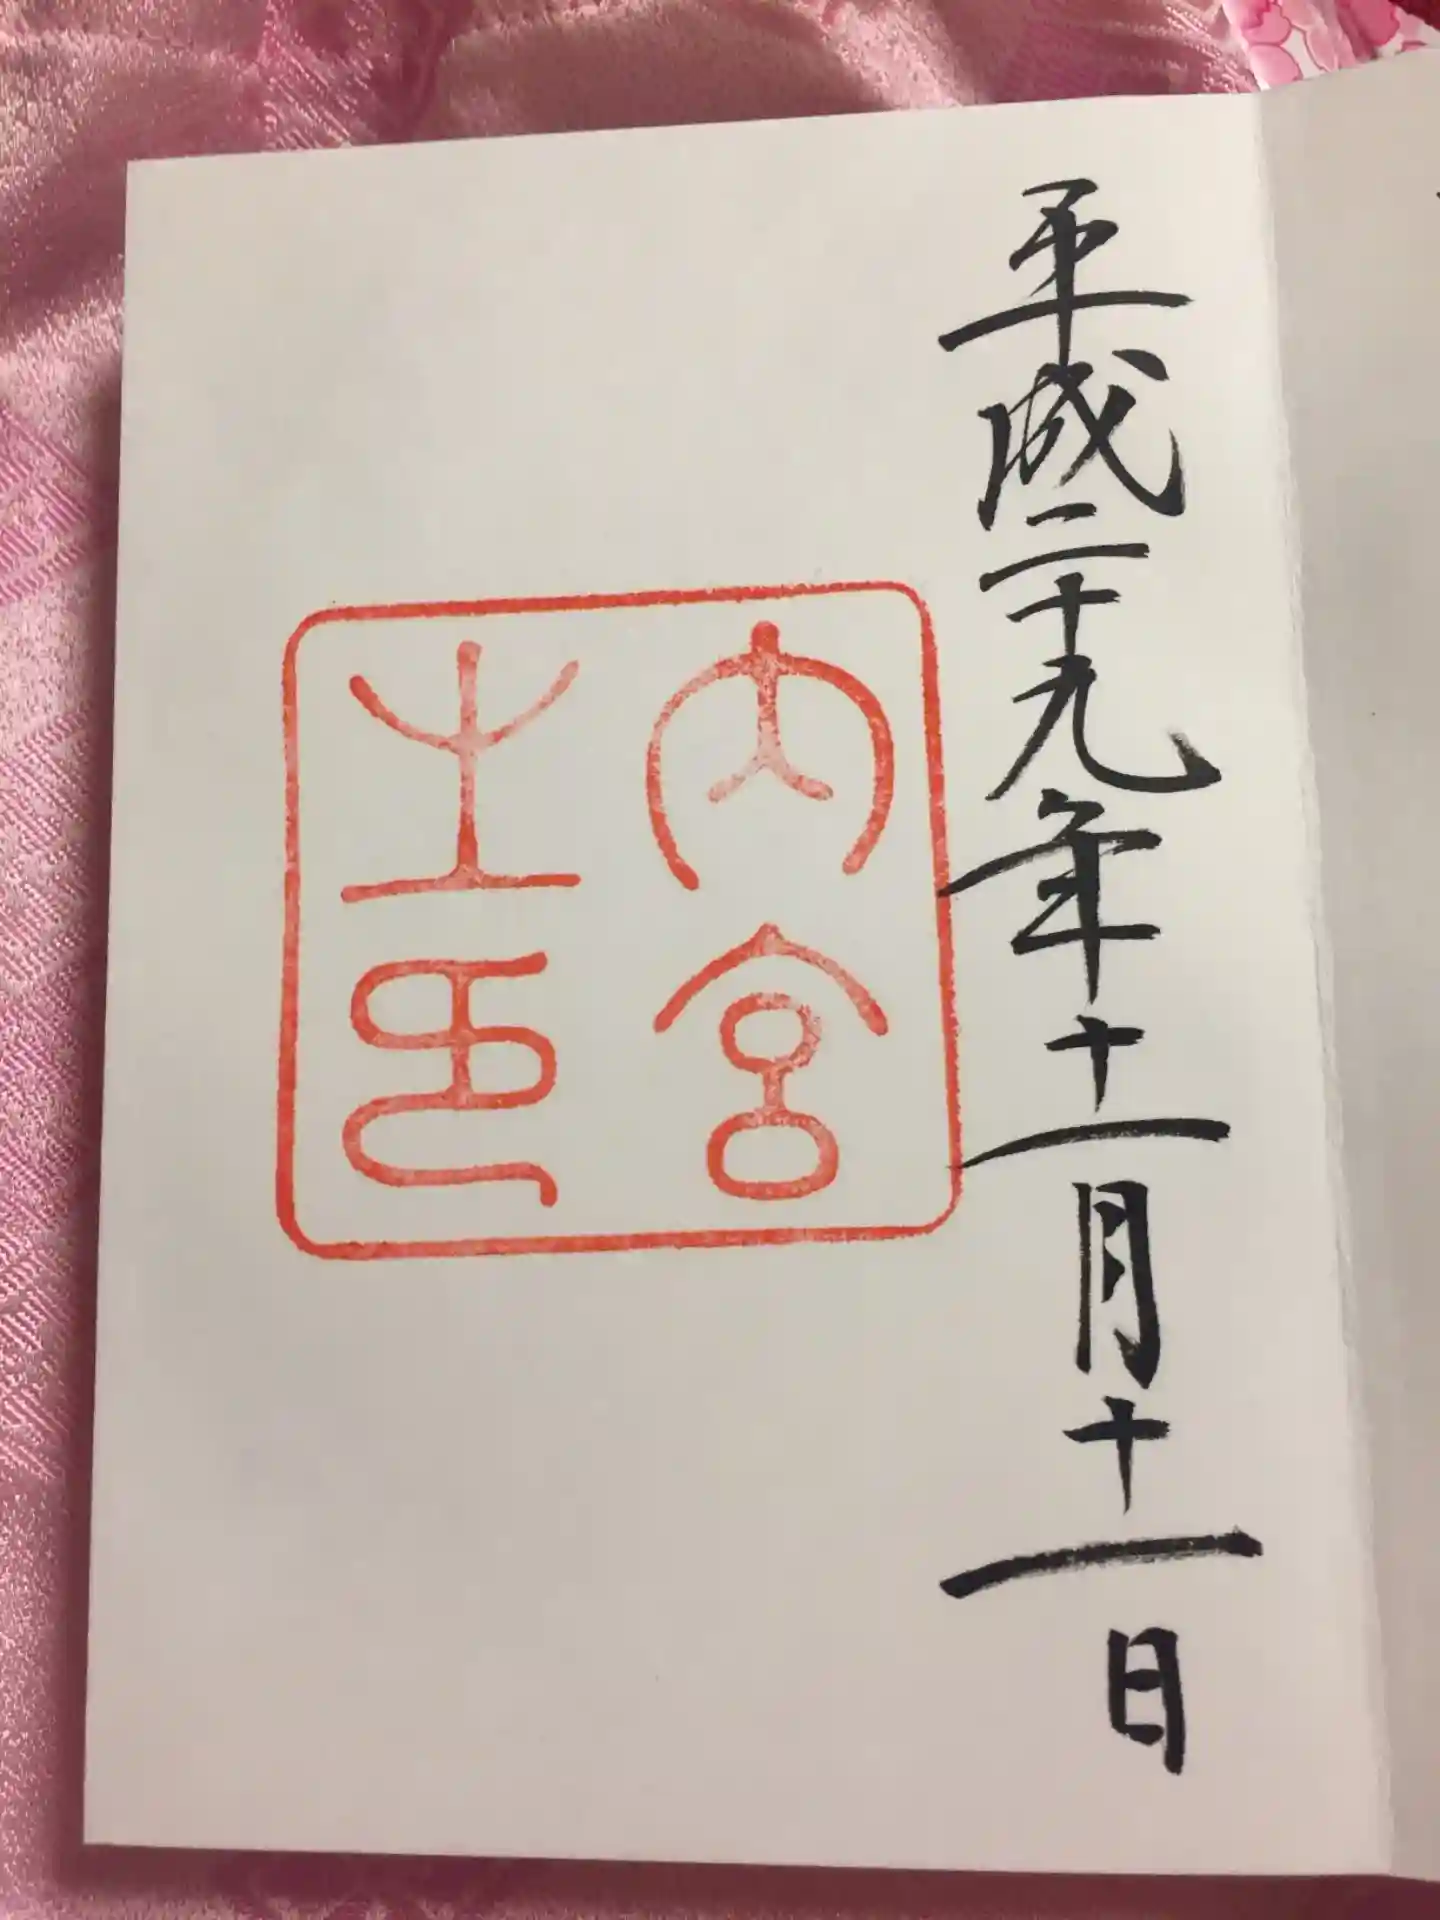 平成二十九年十一月十一日
内宮
之印